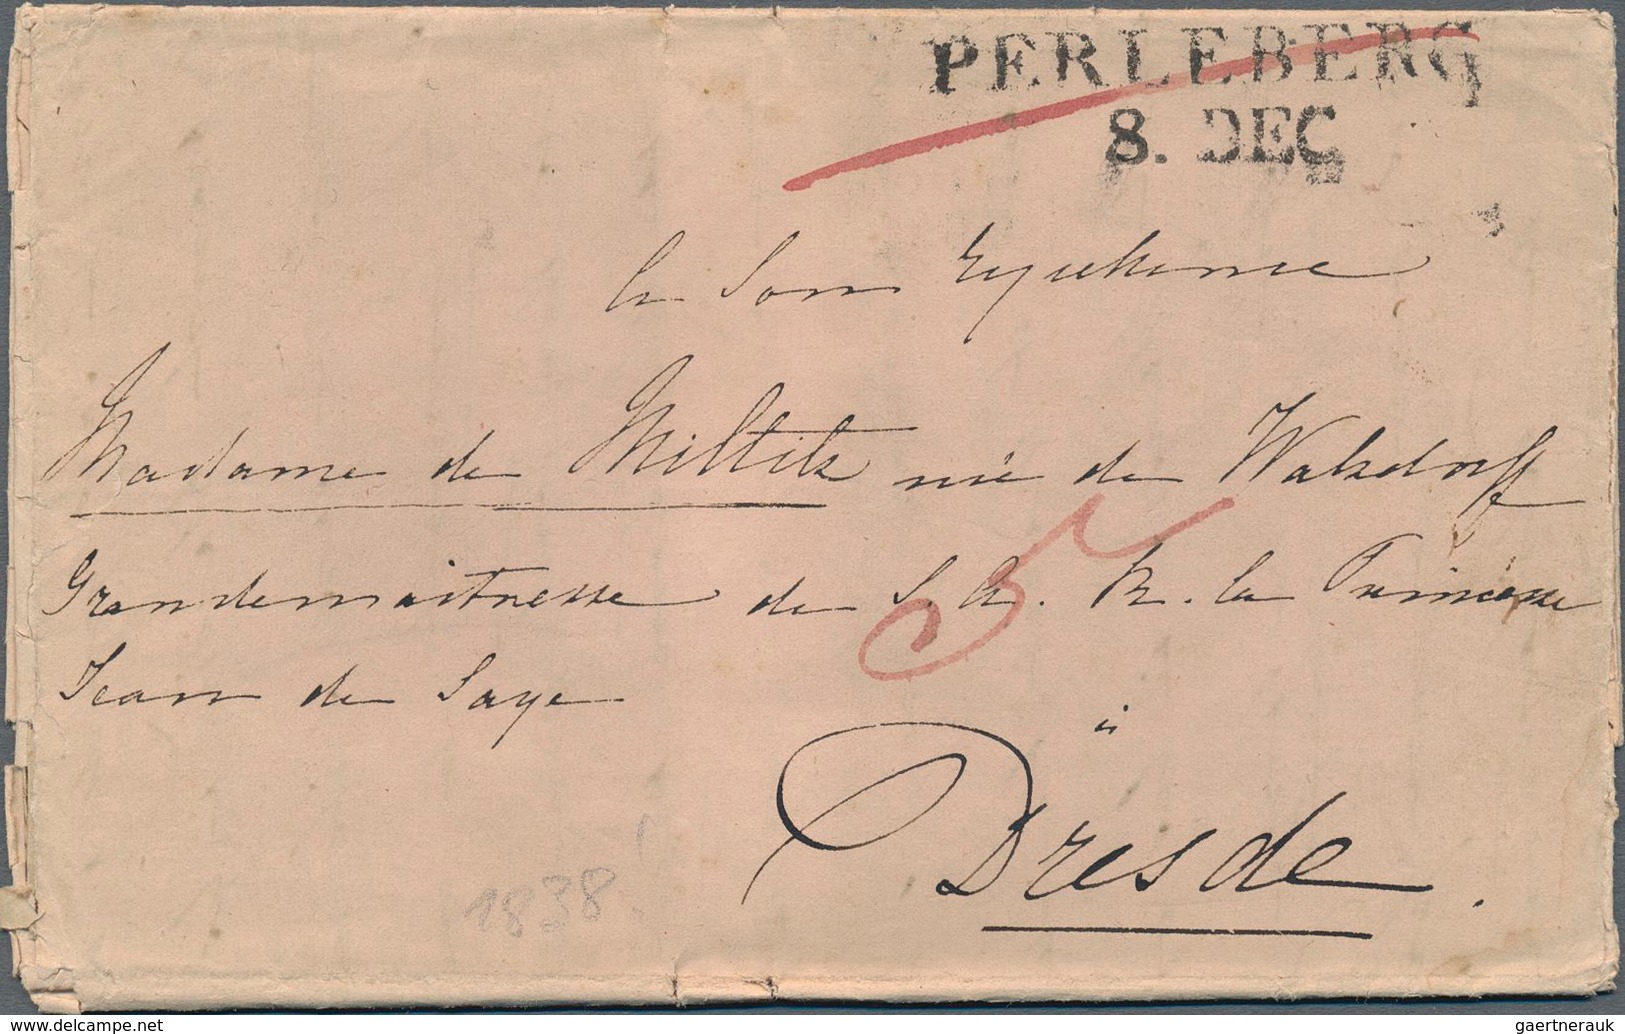 PERLEBERG
8. DEC
a Son Excellence
Madame de Miltitz née de Watzdorff
Grandemaitresse de S. A. R. la Princesse
Jean de Saxe
5
à
Dresde.
1838!
gaertnerauk@delcampe.net